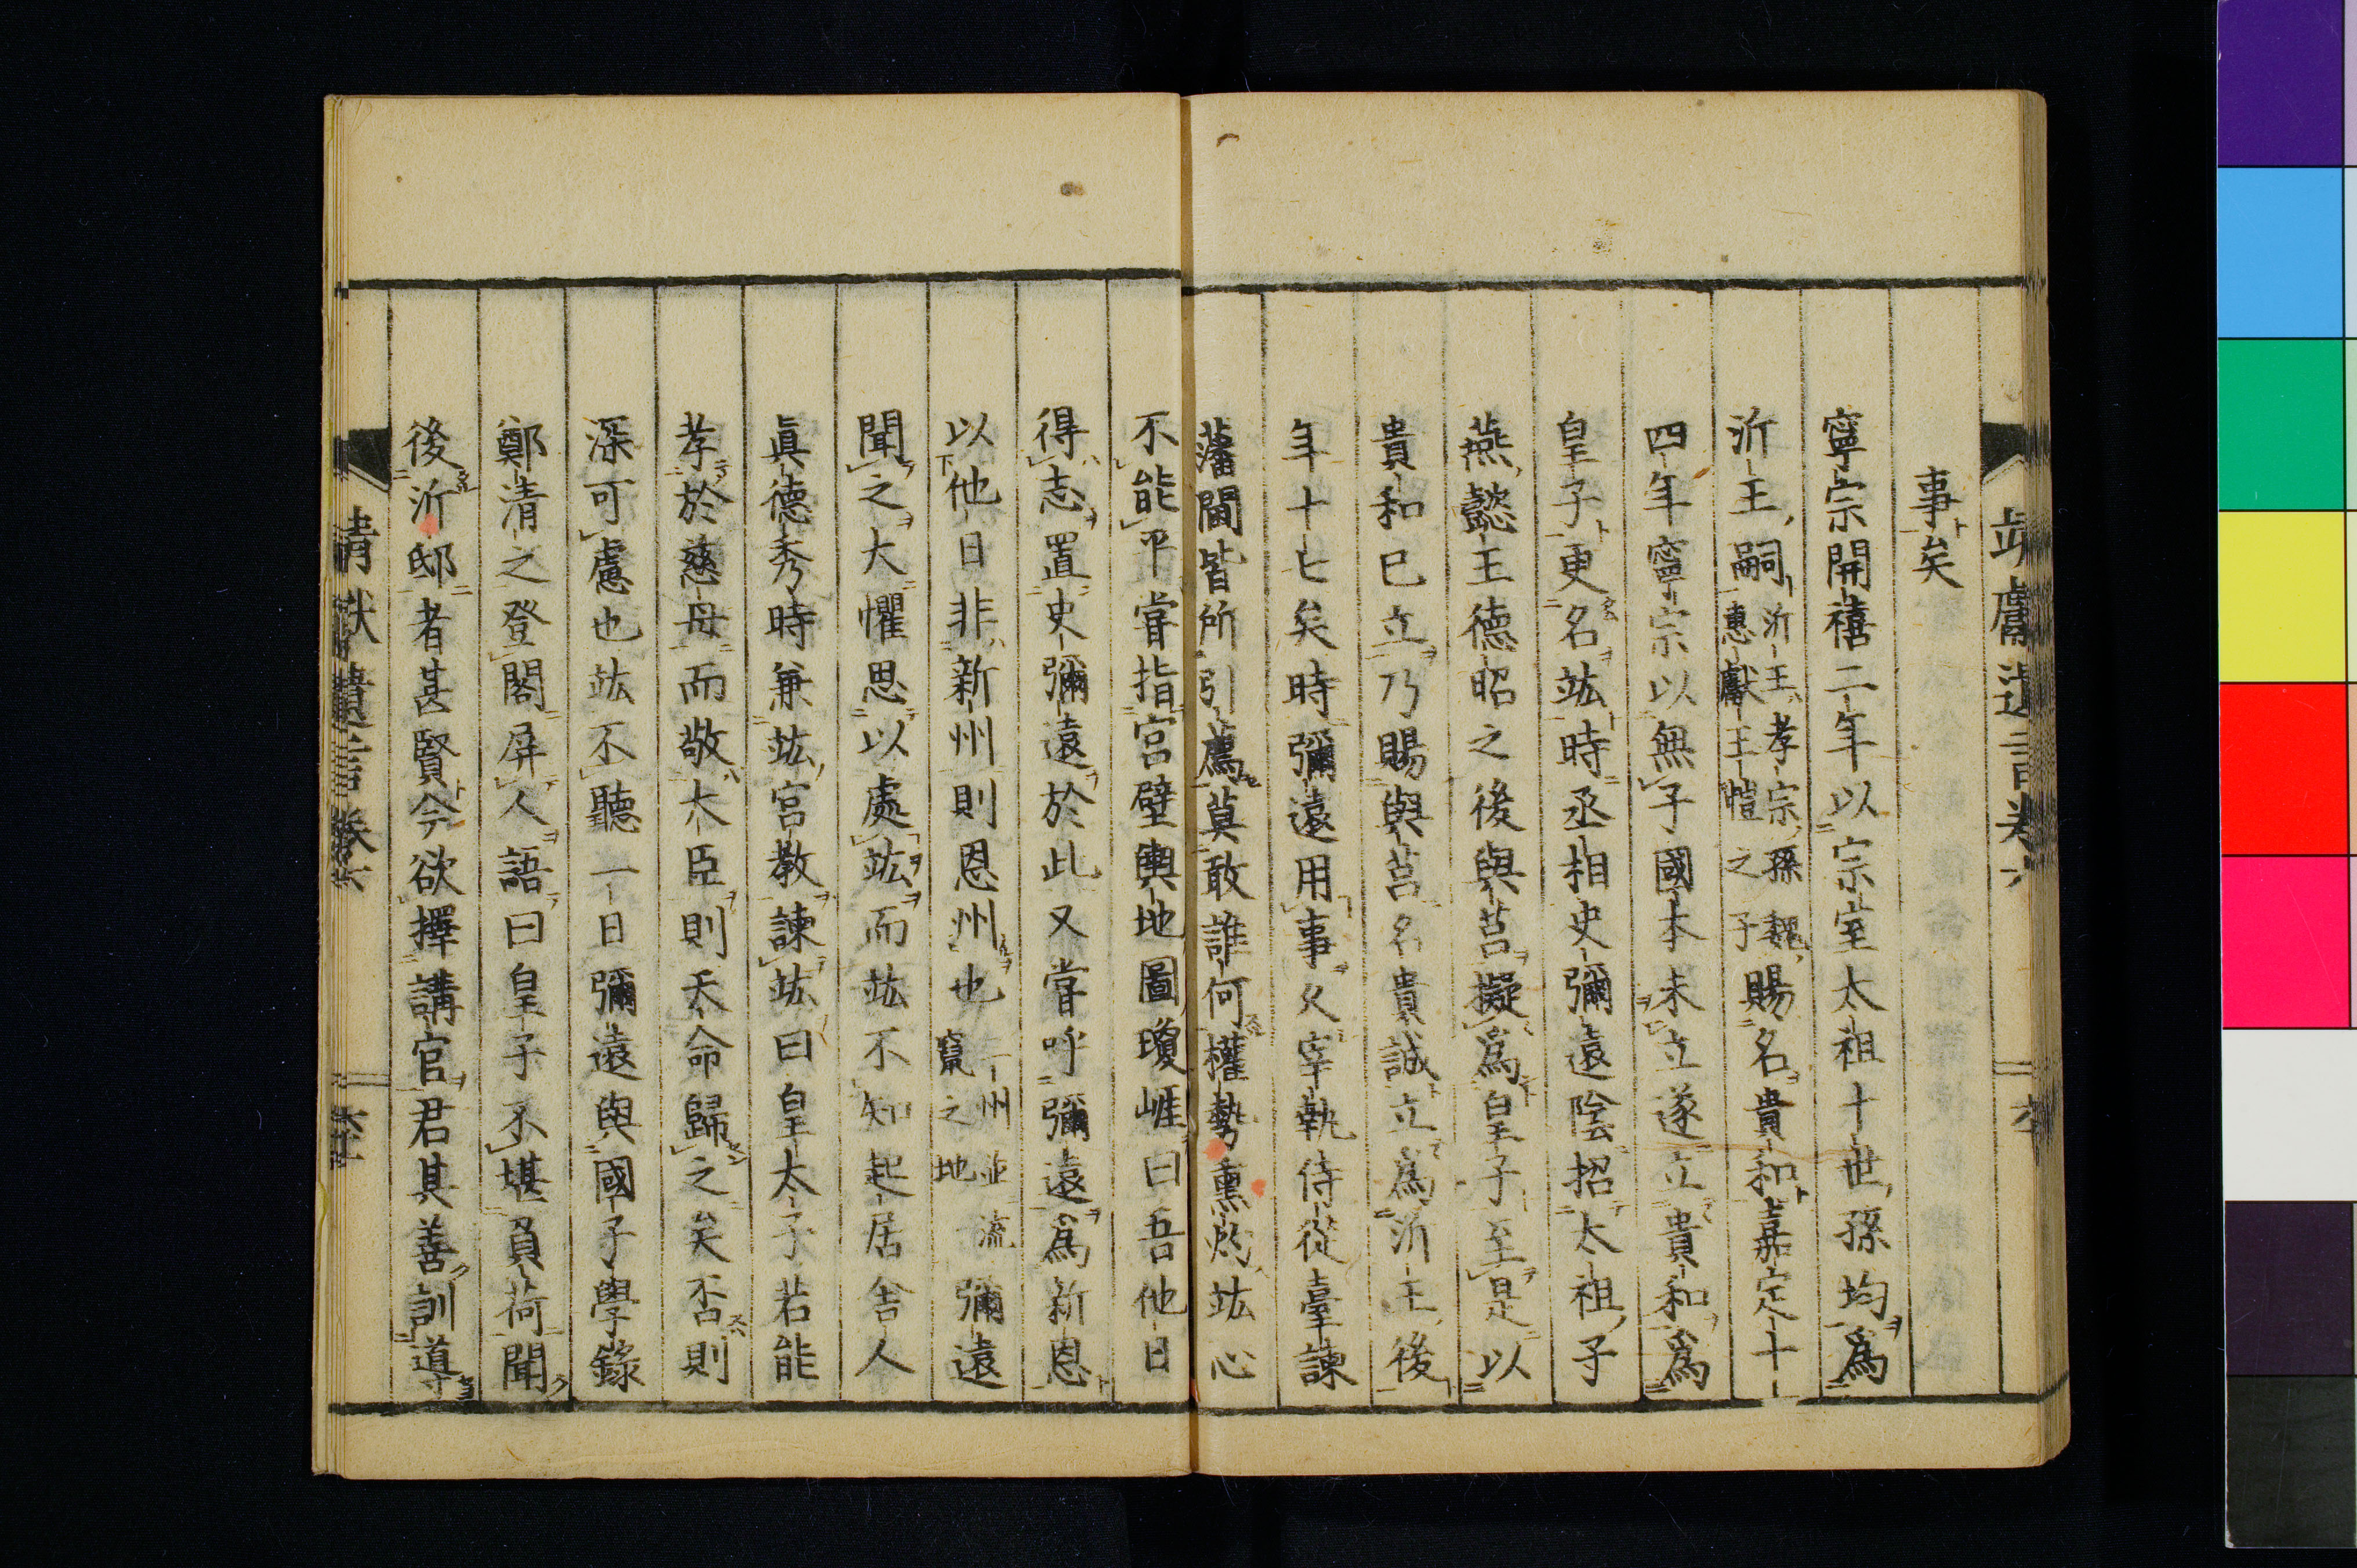 事矣
寧宗開禧二年以宗室太祖十世孫均爲
沂王嗣沂王孝宗孫魏惠獻王愷之子賜名貴和嘉定十
四年寧宗以無子國本未立遂立貴和爲
皇子更名竑時丞相史彌遠陰招太祖子
燕懿王德昭之後與莒擬爲皇子至是以
貴和已立乃賜與莒名貴誠立爲沂王後
年十七矣時彌遠用事久宰執侍從臺諫
藩閫皆所引薦莫敢誰何權勢熏灼竑心
不能平嘗指宮壁輿地圖瓊崖曰吾他日
得志置史彌遠於此又嘗呼彌遠爲新恩
以他日非新州則恩州也二州並流竄之地彌遠
聞之大懼思以處竑而竑不知起居舍人
眞德秀時兼竑宮教諫竑曰皇太子若能
孝於慈母而敬大臣則天命歸之矣否則
深可慮也竑不聽一日彌遠與國子學錄
鄭清之登閣屏人語曰皇子不堪負荷聞
後沂邸者甚賢今欲擇講官君其善訓導
靖獻遺言卷六